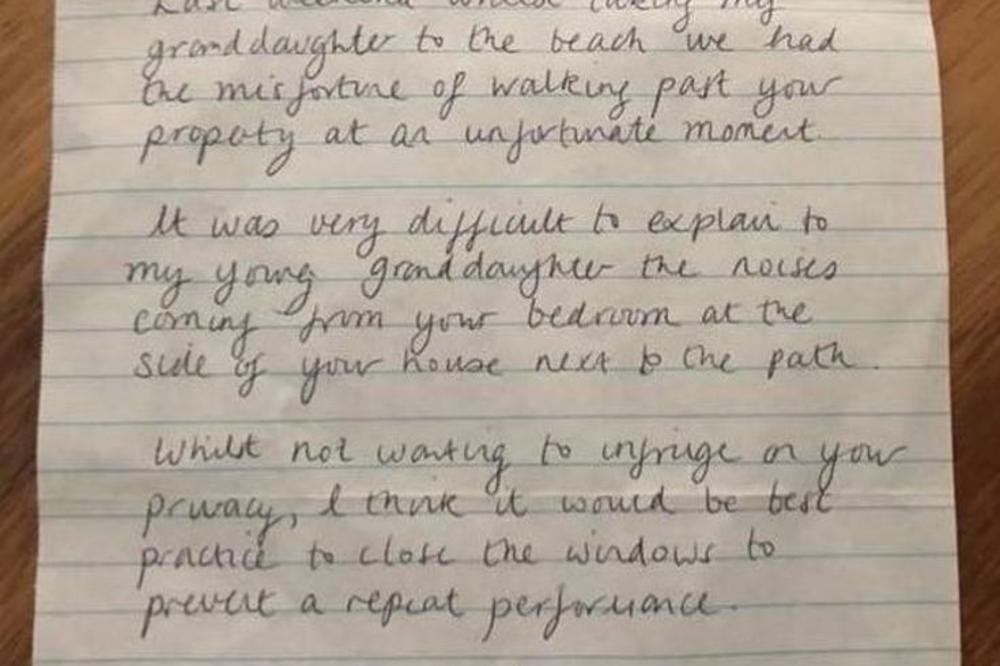 Last weekend whilst taking my
granddaughter to the beach we had
the misfortune of walking past your
property at an unfortunate moment.
It was very difficult to explain to
my young granddaughter the noises
coming from your bedroom at the
side of your house next to the path.
Whilst not wanting to infringe on your
privacy, I think it would be best
practice to close the windows to
prevent a repeat performance.